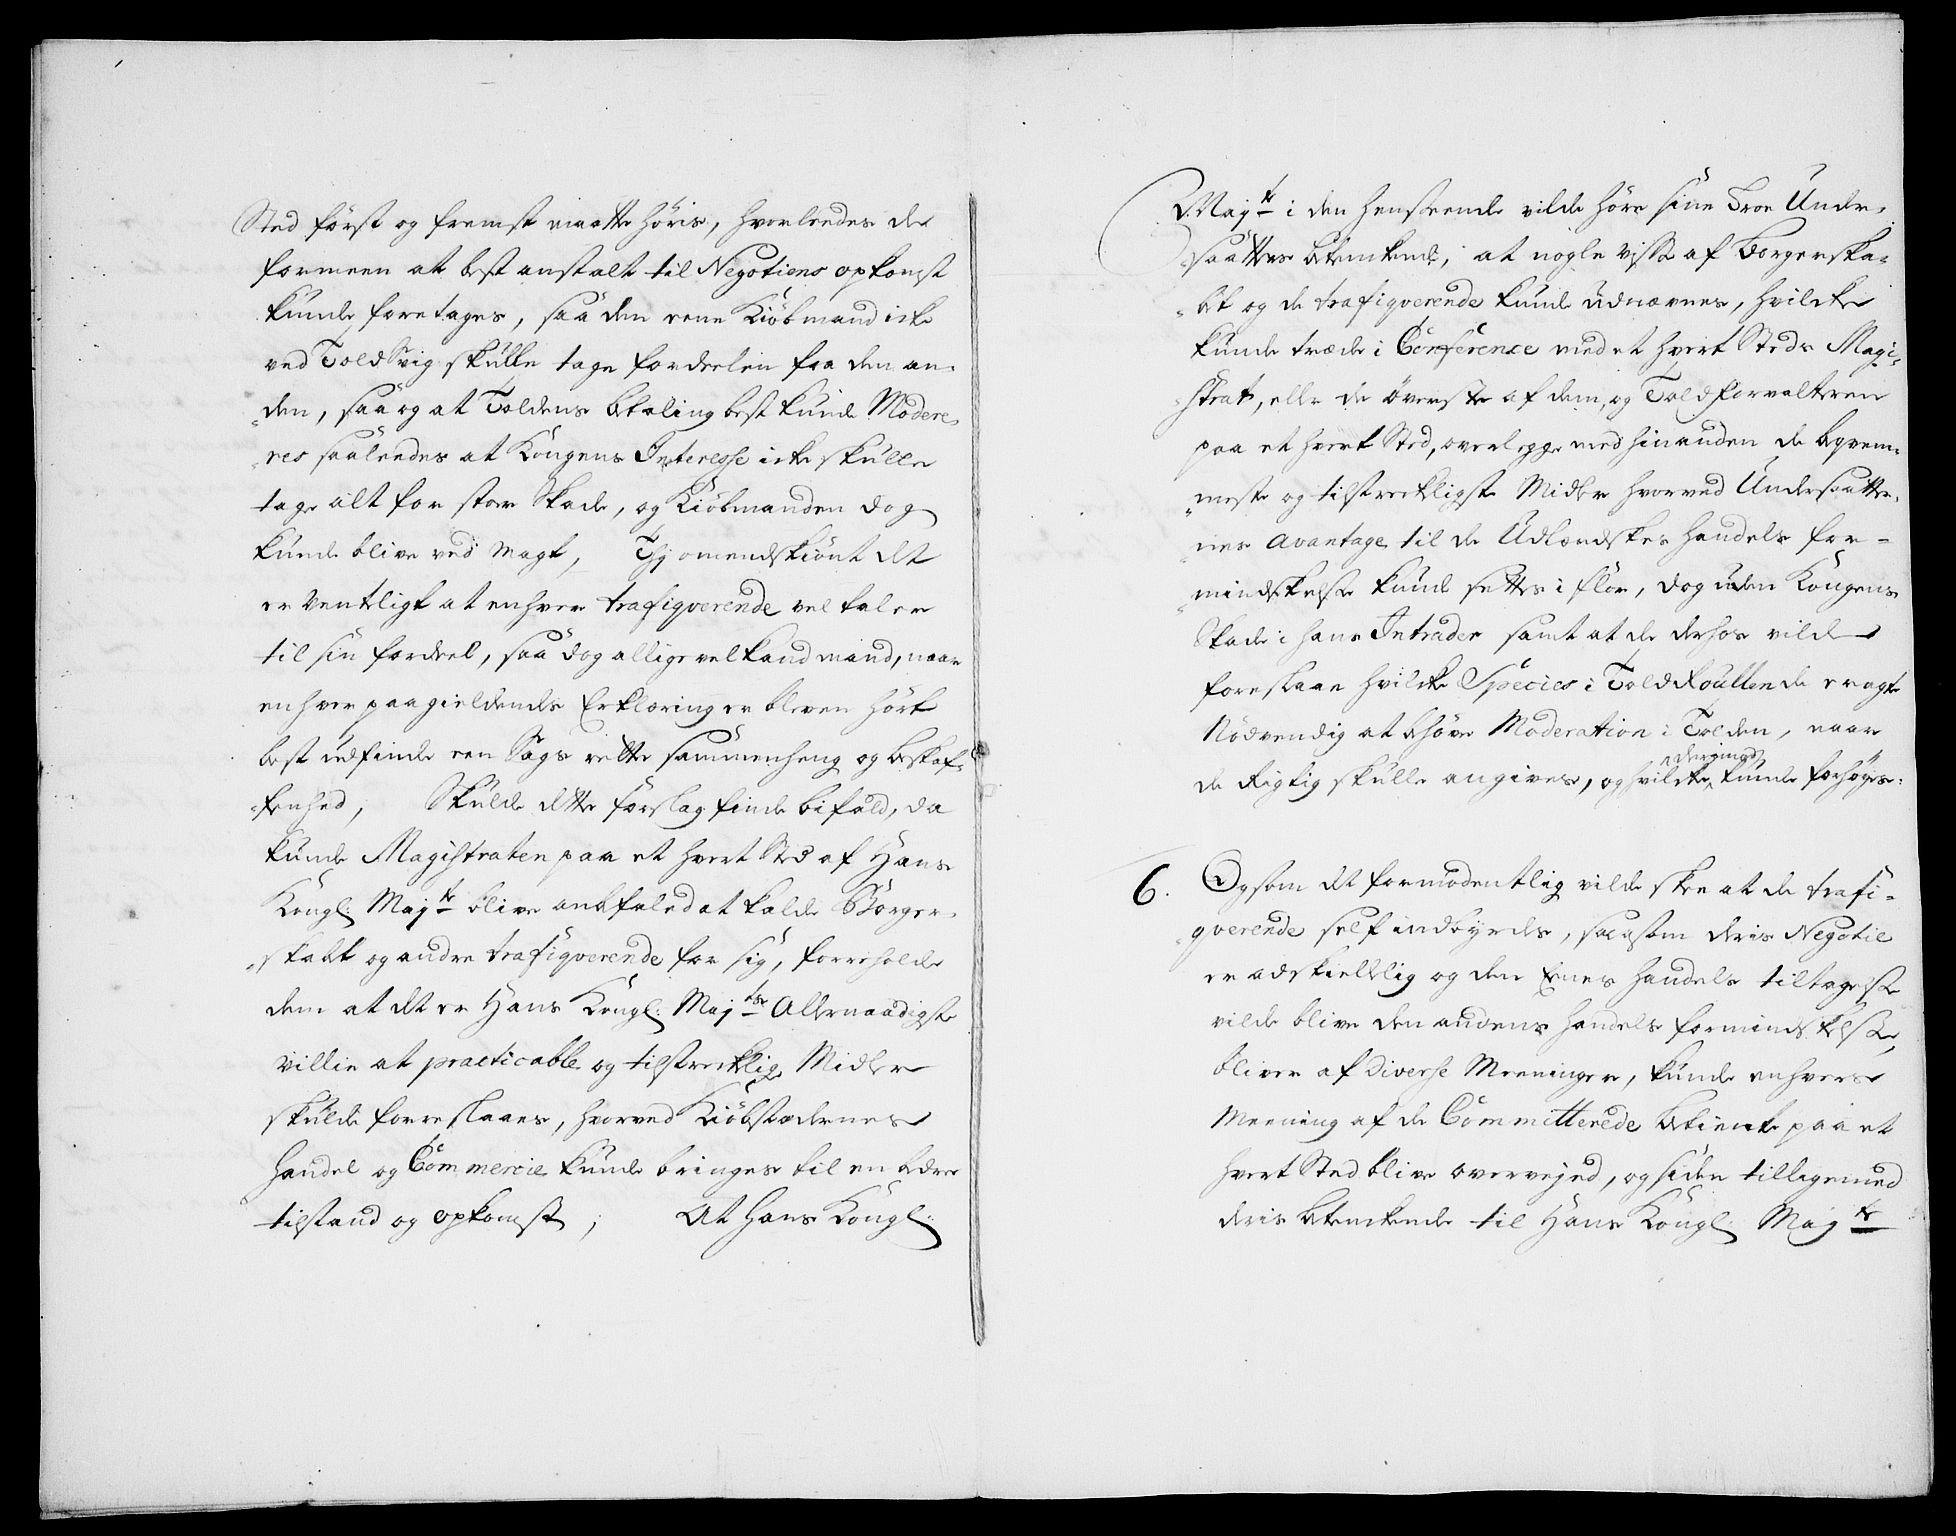 Sted först og fremst maatte höris, hvorledes de
formeen at best anstalt til Negotiens opkomst
kunde foretages, saa den eene Kiöbmand icke
ved Told Svig skulle tage fordeelen fra den an-
den, saa og at Toldens betaling best kunde Modere-
res saaledes at Kongens Interesse icke skulle
tage alt for stor Skade, og Kiöbmanden dog
kunde blive ved magt, Thj omendskiönt det
er Ventligt at enhver trafiqverende vel taler
til sin fordeel, saa dog alligevel kand mand, naar
enhver paagieldendes Erklæring er bleven hört
best udfinde een Sags rette sammenheng og beskaf-
fenhed, Skulde dette forslag finde bifald, da
kunde Magistraten paa et hvert Sted af Hans
Kongl: Majt blive anbefaled at kalde Borger-
skabet og andre trafiqverende for sig, foreholde
dem at det er Hans Kongl: Majts Allernaadigste
villie at practicable og tilstreckelige Midler
skulde foreslaaes, hvorved Kiöbstædernes
handel og Commercie kunde bringes til en bedre
tilstand og opkomst; At Hans Kongl:
Majt i den henseende vilde höre sine Troe Under-
saatters betenkende, at nogle visse af borgerska-
bet og de trafiqverende kunde udnævnes, hvilcke
kunde træde i Conference med et hvert Steds Magi-
strat, eller de överste af dem, og Toldforvalteren
paa et hvert Sted, overlegge med hinanden de beqvem-
meste og tilstreckligste Midler hvorved Undersaatter-
nes avantage til de Udlændskes handels for-
mindskelse kunde settes i flor, dog uden Kongens
Skade i hans Intrader samt at de derhos vilde
foreslaae hvilcke Species i Told Roullen de eragte
Nödvendig at behöve Moderation i Tolden, naar
de Rigtig skulle angives, og hvilcke derimod kunde forhöyes:
6. Og som det formodentlig vilde skee at de trafi-
qverende self indbyrdes, saasom deris Negotie
er adskiellig og den Eenes handels tiltagelse
vilde blive den andens handels formindskelse,
bliver af diverse Meeninger, kunde enhvers
Meening af de Committerede betiente paa et
hvert Sted blive overvejed, og siden tilligemed
deris betenkende til Hans Kongl: Majt